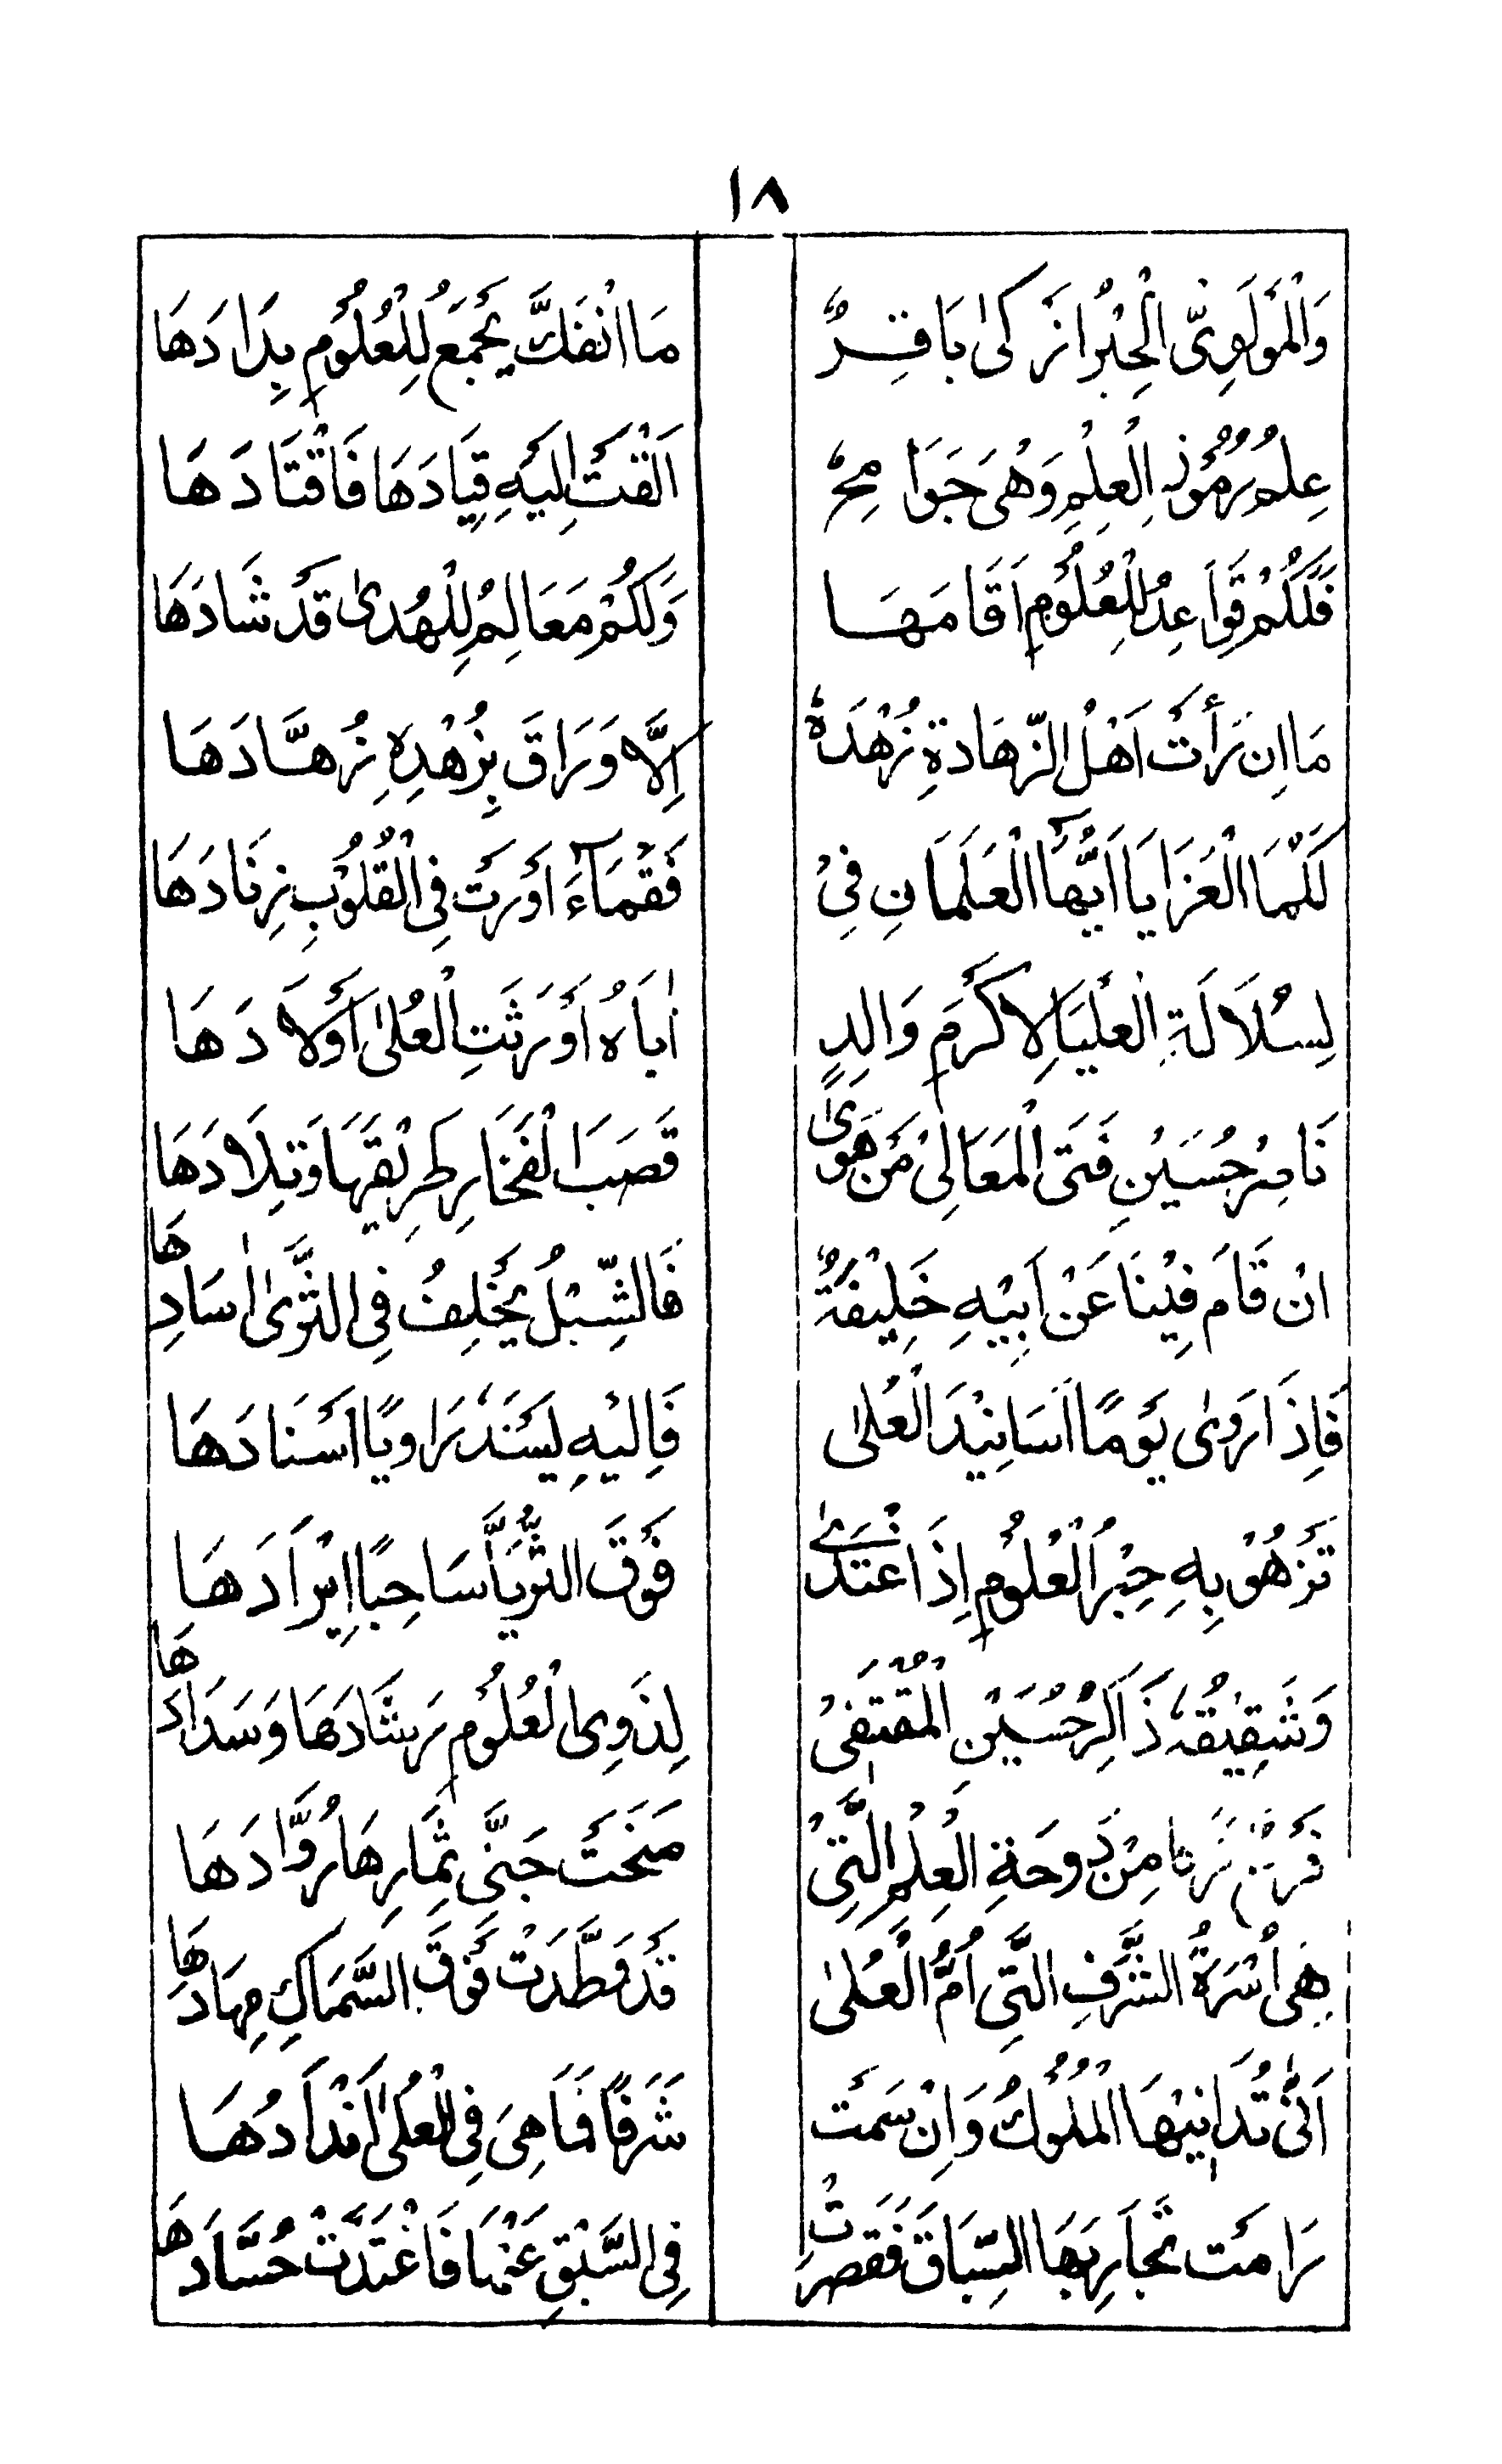 ١٨
وَالْمَوْلَوِىّ الْحِبْرُ اَزْكىٰ بَاقِرٌ مَا انْفَكَّ يَجْمَعُ لِلْعُلُوْمِ بِدَادَهَا
عِلْمُ رُمُوْزِ الْعِلْمِ وَهْىَ جَوَامِحٌ اَلْقَتْ اِلَيْهِ قِيَادَهَا فَاقْتَادَهَا
فَلَكُمْ قَوَاعِدُ لِلْعُلُوْمِ اَقَامَهَا وَلَكُمْ مَعَالِمُ لِلْهُدىٰ قَدْ شَادَهَا
مَا اِن رَأَتْ اَهْلُ الزّهَادَةِ زُهْدَهٗ اِلَّا وَرَاقَ بِزُهْدِهِ زُهَّادَهَا
لَكُمَا الْعَزَايَا اَيُّهَا الْعَلَمَانِ فِىْ فَقْمَاءَ اَوْرَتْ فِى الْقُلُوْبِ زِنَادَهَا
لِسُلَالَةِ الْعَلْيَا لِاَكْرَمِ وَالِدٍ اٰبَاهُ اَوْرَثَتِ الْعُلىٰ اَوْلَادَهَا
نَاصِرْ حُسَيْنِ فَتَى الْمَعَالِىْ مَنْ هَوىٰ قَصَبَ الْفَخَارِ طَرِيْقَهَا وَتِلَادَهَا
انْ قَامَ فِيْنَا عَنْ اَبِيْهِ خَلِيْفَةً فَالشِّبْلُ يَخْلِفُ فِى الثَّرىٰ اٰسَادِهَا
فَاِذَا رَوىٰ يَوْمًا اَسَانِيْدَ الْعُلىٰ فَاِلَيْهِ يَسْنَدُ رَاوِيًا اَسْنَادَهَا
تَزْهُوْ بِهِ حِبْرُ الْعُلُوْمِ اِذَا اعْتَدىٰ فَوْقَ الثُّرَيَّا سَاحِبًا اِبْرَادَهَا
وَشَقِيْقُهٗ ذَاكِرْ حُسَيْنِ الْمُقْتَفىْ لِذَوِى الْعُلُوْمِ رَشَادَهَا وَسَدَادَهَا
مِنْ دَوحَةِ الْعِلْمِ الَّتِىْ مَنَحَتْ جَنٰى ثِمَارِهَا رُوَّادَهَا
هِىَ اُسْرَةُ الشَّرَفِ الَّتِى اُمُّ الْعُلىٰ قَدْ وَطَّدَتْ فَوْقَ السَّمَاكِ مِهَادَهَا
اَنّىٰ تُدَانِيْهَا الْمُلُوْكُ وَاِنْ سَمَتْ شَرَفًا فَمَا هِىَ فِى الْعُلىٰ اَنْدَادُهَا
رَامَتْ تُجَارِيَهَا السِّبَاقَ فَقَصَّرَتْ فِى السَّبْقِ عَنْهَا فَاغْتَدَتْ حُسَّادَهَا